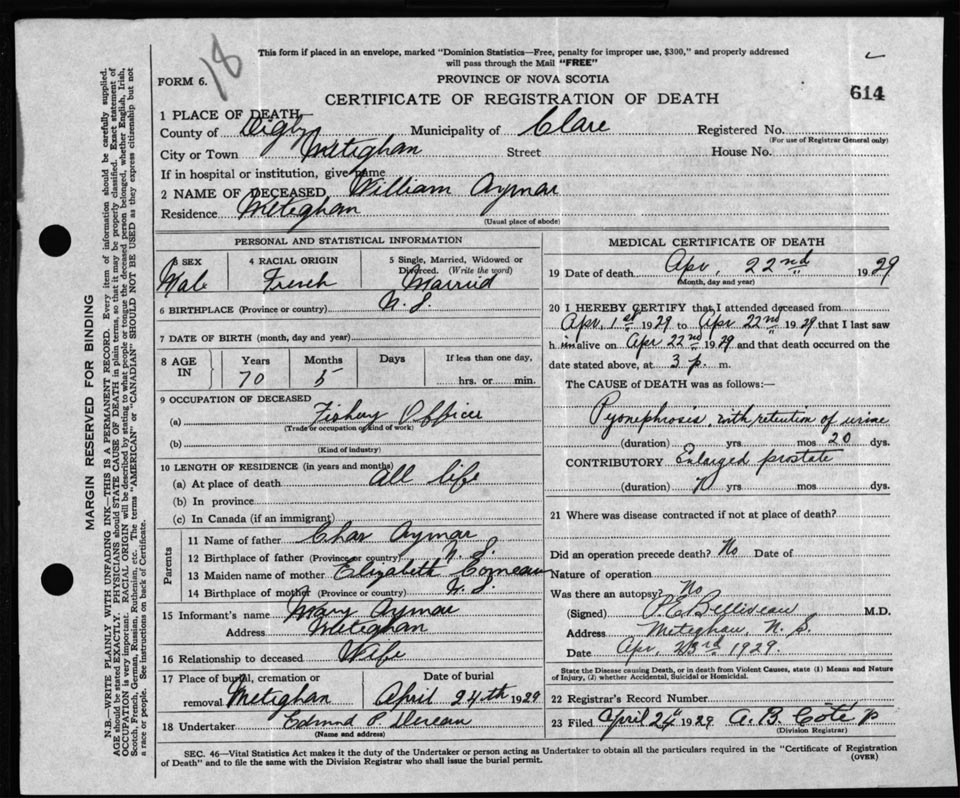 18
This form if placed in an envelope, marked "Dominion Statistics—Free, penalty for improper use, $300," and properly addressed
will pass through the Mail "FREE"
FORM 6.
PROVINCE OF NOVA SCOTIA
CERTIFICATE OF REGISTRATION OF DEATH
614
1 PLACE OF DEATH—
County of Digby Municipality of Clare Registered No.
(For use of Registrar General only)
City or Town Meteghan Street House No.
If in hospital or institution, give name
2 NAME OF DECEASED William Aymar
Residence Meteghan
(Usual place of abode)
PERSONAL AND STATISTICAL INFORMATION
3 SEX 4 RACIAL ORIGIN 5 Single, Married, Widowed or
Divorced. (Write the word)
Male French Married
6 BIRTHPLACE (Province or country) N. S.
7 DATE OF BIRTH (month, day and year)
8 AGE IN Years Months Days If less than one day,
70 5 hrs. or min.
9 OCCUPATION OF DECEASED
(a) Fishery Officer
(Trade or occupation or kind of work)
(b)
(Kind of industry)
10 LENGTH OF RESIDENCE (in years and months)
(a) At place of death All life
(b) In province
(c) In Canada (if an immigrant)
Parents
11 Name of father Chas Aymar
12 Birthplace of father (Province or country) N. S.
13 Maiden name of mother Elizabeth Comeau
14 Birthplace of mother (Province or country) N. S.
15 Informant's name Mary Aymar
Address Meteghan
16 Relationship to deceased Wife
17 Place of burial, cremation or Date of burial
removal Meteghan April 24th 1929
18 Undertaker Edmund P.
(Name and address)
MEDICAL CERTIFICATE OF DEATH
19 Date of death Apr. 22nd 1929
(Month, day and year)
20 I HEREBY CERTIFY that I attended deceased from
Apr. 1st 1929 to Apr 22nd 1929 that I last saw
him alive on Apr 22nd 1929 and that death occurred on the
date stated above, at 3 p. m.
The CAUSE of DEATH was as follows:—
Pyonephrosis, with retention of urine
(duration) yrs mos 20 dys.
CONTRIBUTORY Enlarged prostate
(duration) yrs mos dys.
21 Where was disease contracted if not at place of death?
Did an operation precede death? No Date of
Nature of operation
Was there an autopsy? No
(Signed) P. E. Belliveau M.D.
Address Meteghan, N. S.
Date Apr. 23rd 1929.
State the Disease causing Death, or in death from Violent Causes, state (1) Means and Nature
of Injury, (2) whether Accidental, Suicidal or Homicidal.
22 Registrar's Record Number
23 Filed April 24 1929 A. B. Coté
(Division Registrar)
SEC. 46—Vital Statistics Act makes it the duty of the Undertaker or person acting as Undertaker to obtain all the particulars required in the "Certificate of Registration
of Death" and to file the same with the Division Registrar who shall issue the burial permit.
(OVER)
MARGIN RESERVED FOR BINDING
N.B.—WRITE PLAINLY WITH UNFADING INK—THIS IS A PERMANENT RECORD. Every item of information should be carefully supplied.
AGE should be stated EXACTLY. PHYSICIANS should STATE CAUSE OF DEATH in plain terms, so that it may be properly classified. Exact statement of
OCCUPATION is very important. RACIAL ORIGIN will be described by stating to what people or tongue the deceased person belonged, whether English, Irish,
Scotch, French, German, Russian, Ruthenian, etc. The terms "AMERICAN" or "CANADIAN" SHOULD NOT BE USED as they express citizenship but not
a race or people. See instructions on back of Certificate.